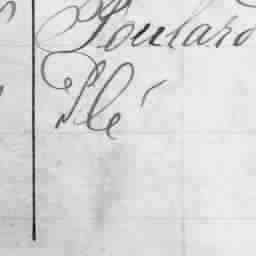 Poulard
Plé